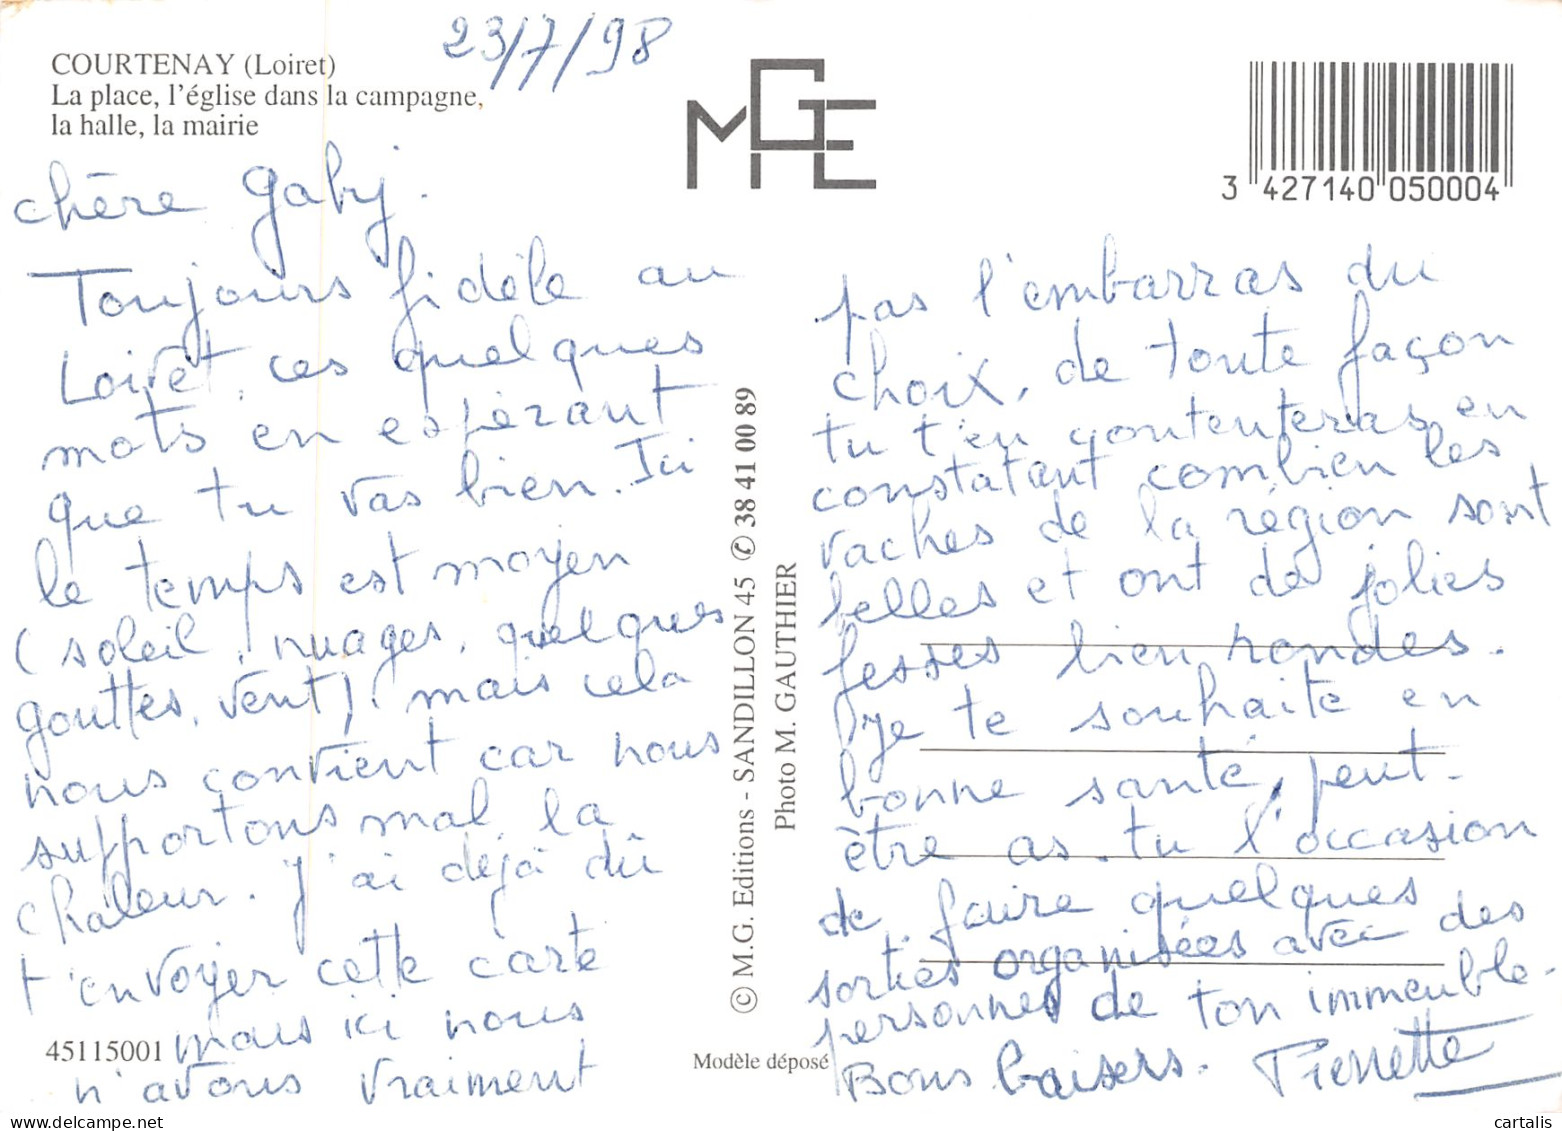 23/7/98
COURTENAY (Loiret)
La place, l'église dans la campagne,
la halle, la mairie
MGE
3 427140 050004
chère Gaby.
Toujours fidèle au
Loiret, ces quelques
mots en espérant
que tu vas bien. Ici
le temps est moyen
(soleil, nuages, quelques
gouttes, vent), mais cela
nous convient car nous
supportons mal la
chaleur. J'ai déjà dû
t'envoyer cette carte
mais ici nous
n'avons vraiment
45115001
© M.G. Editions - SANDILLON 45 ✆ 38 41 00 89
Photo M. GAUTHIER
Modèle déposé
pas l'embarras du
choix, de toute façon
tu t'en contenteras en
constatant combien les
vaches de la région sont
belles et ont de jolies
fesses bien rondes.
Je te souhaite en
bonne santé, peut-
être as-tu l'occasion
de faire quelques
sorties organisées avec des
personnes de ton immeuble.
Bons baisers. Pierrette
cartalis